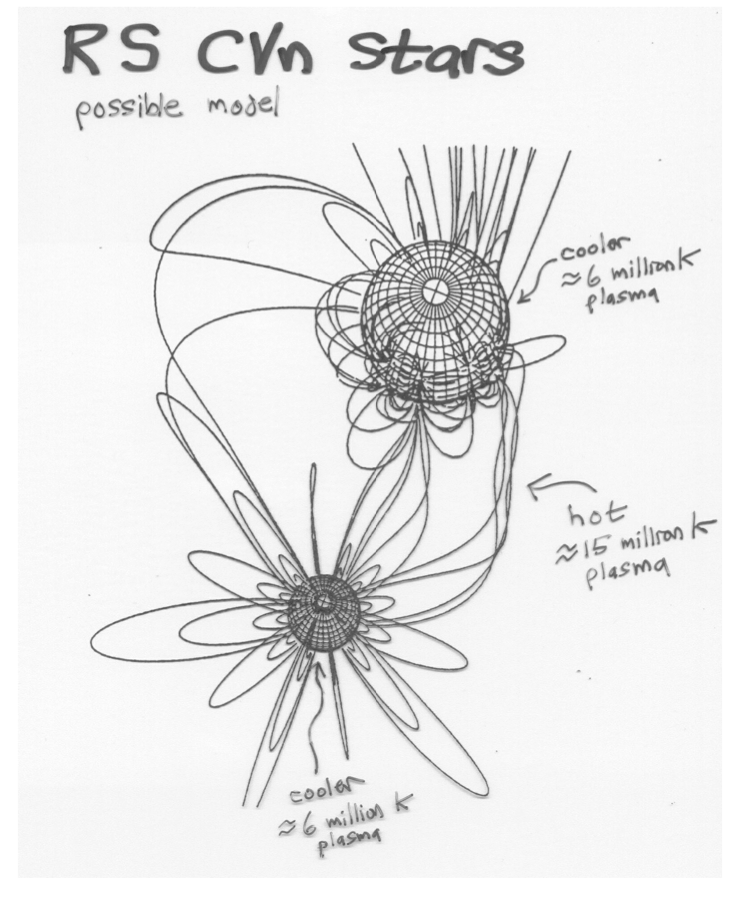 RS CVn Stars
possible model
cooler
≈6 million K
plasma
hot
≈15 million K
plasma
cooler
≈6 million K
plasma